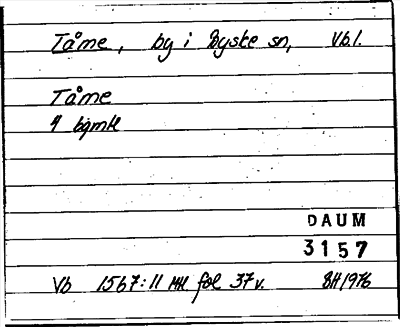 Tåme, by i Byske sn, Vb.l.
Tåme
9 bgmk
DAUM
3157
Vb 1567:11 MH fol 37v. BH 1976